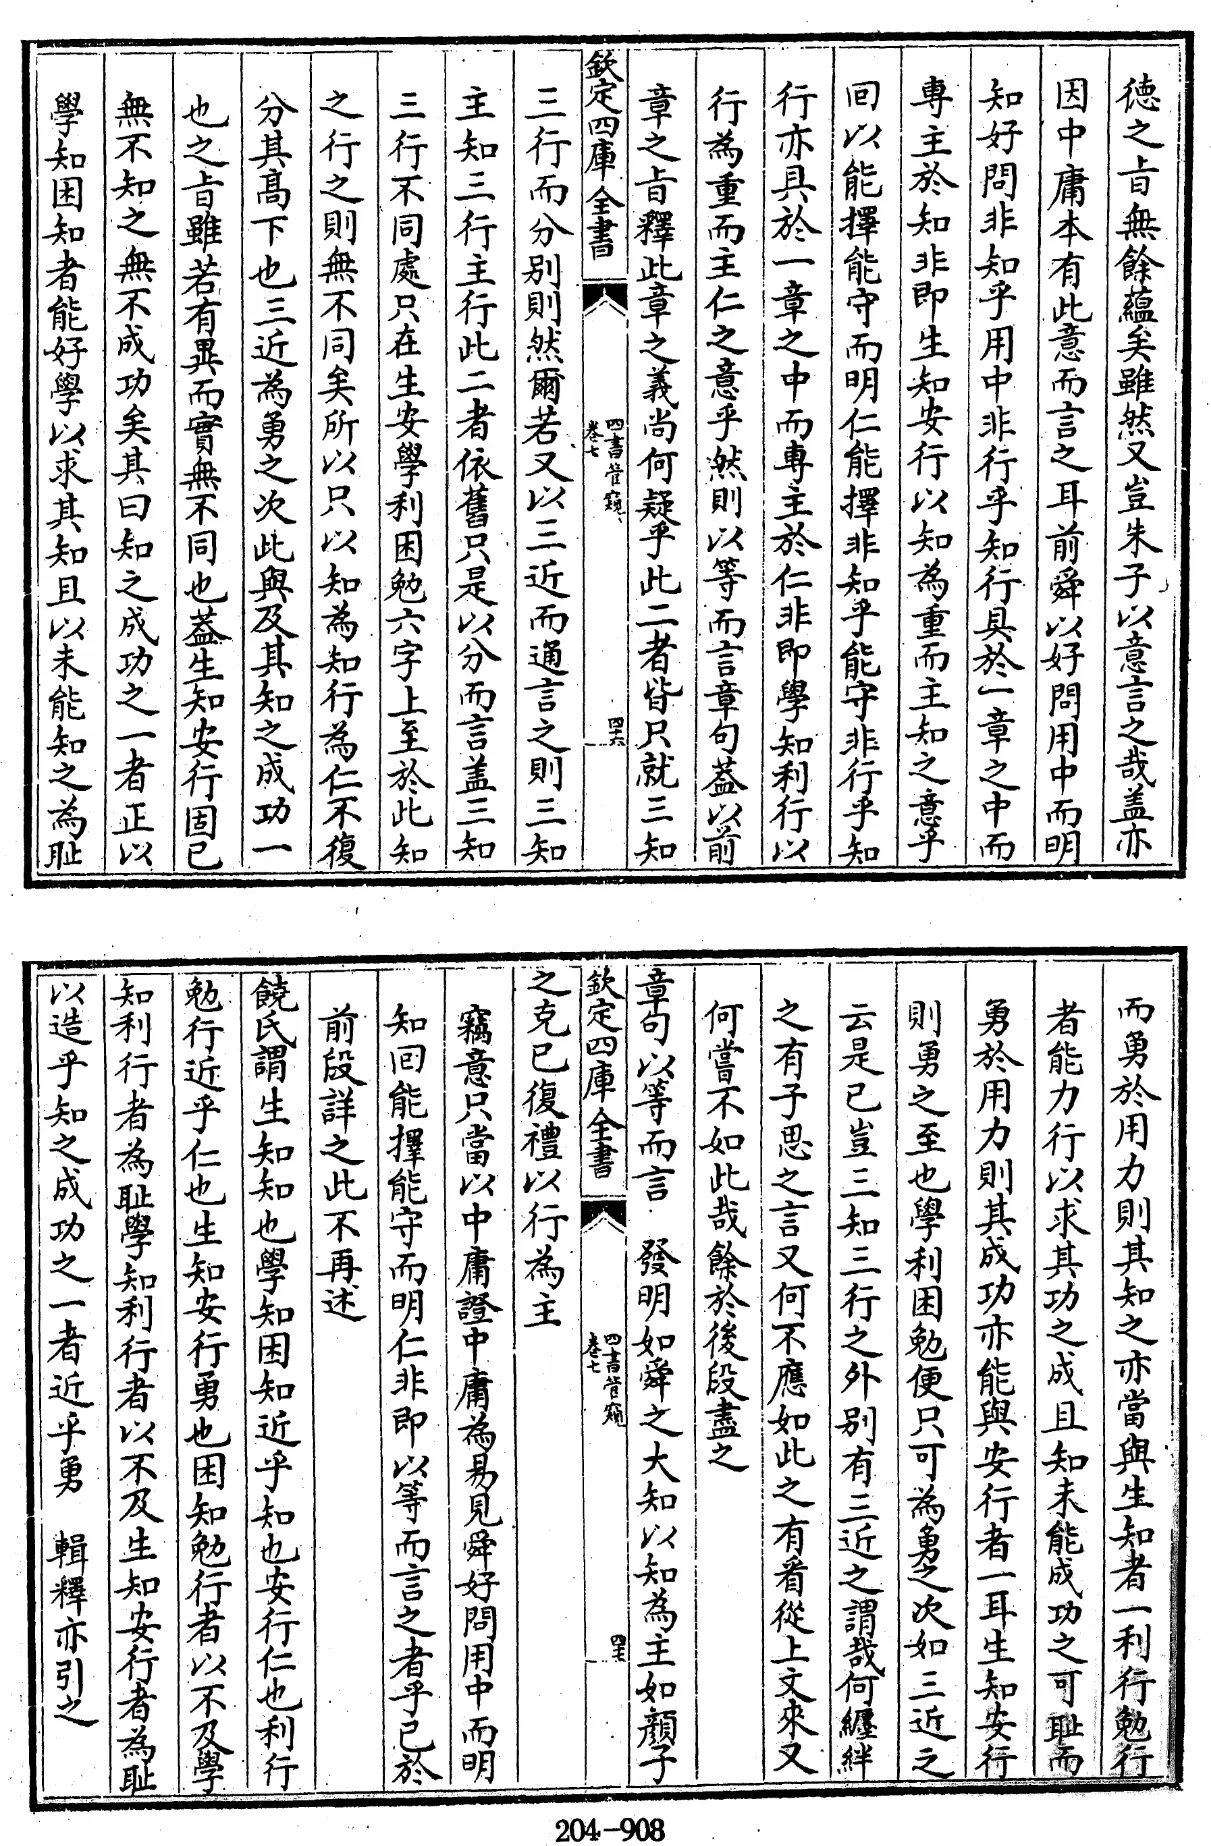 德之㫖無餘藴矣雖然又豈朱子以意言之哉盖亦
因中庸本有此意而言之耳前舜以好問用中而明
知好問非知乎用中非行乎知行具於一章之中而
専主於知非即生知安行以知為重而主知之意乎
回以能擇能守而明仁能擇非知乎能守非行乎知
行亦具於一章之中而専主於仁非即學知利行以
行為重而主仁之意乎然則以等而言章句葢以前
章之㫖釋此章之義尚何疑乎此二者皆只就三知
欽定四庫全書
四書管窺
卷七
四六
三行而分别則然爾若又以三近而通言之則三知
主知三行主行此二者依舊只是以分而言盖三知
三行不同處只在生安學利困勉六字上至於此知
之行之則無不同矣所以只以知為知行為仁不復
分其髙下也三近為勇之次此與及其知之成功一
也之㫖雖若有異而實無不同也葢生知安行固已
無不知之無不成功矣其曰知之成功之一者正以
學知困知者能好學以求其知且以未能知之為恥
而勇於用力則其知之亦當與生知者一利行勉行
者能力行以求其功之成且知未能成功之可恥而
勇於用力則其成功亦能與安行者一耳生知安行
則勇之至也學利困勉便只可為勇之次如三近之
云是已豈三知三行之外别有三近之謂哉何纒絆
之有子思之言又何不應如此之有㸔從上文來又
何嘗不如此哉餘於後段盡之
章句以等而言　發明如舜之大知以知為主如顔子
欽定四庫全書
四書管窺
卷七
四七
之克已復禮以行為主
竊意只當以中庸證中庸為易見舜好問用中而明
知回能擇能守而明仁非即以等而言之者乎已於
前段詳之此不再述
饒氏謂生知知也學知困知近乎知也安行仁也利行
勉行近乎仁也生知安行勇也困知勉行者以不及學
知利行者為恥學知利行者以不及生知安行者為恥
以造乎知之成功之一者近乎勇　輯釋亦引之
204-908